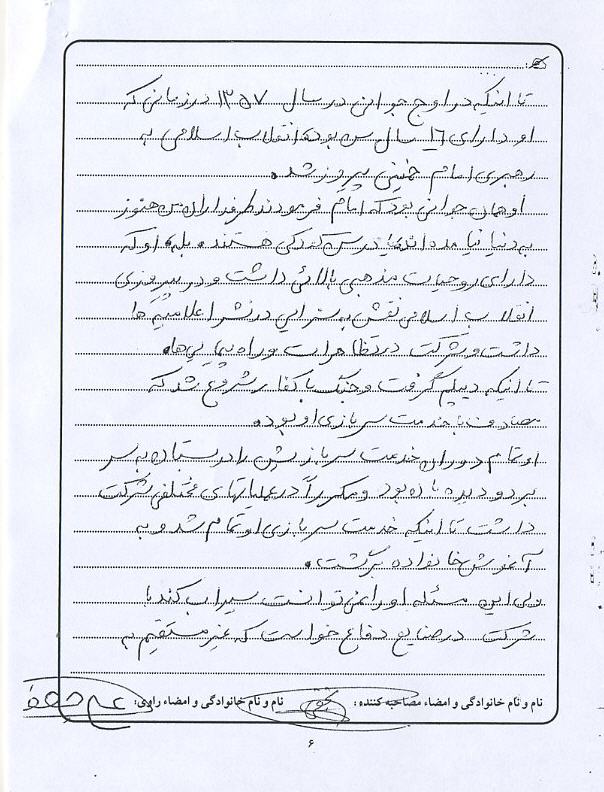 تا اینکه در اوج جوانی در سال ۱۳۵۷ در زمانی که
او دارای ۱۶ سال سن بود که انقلاب اسلامی به
رهبری امام خمینی پیروز شد.
او همان جوانی بود که امام فرمودند طرفداران من هنوز
به دنیا نیامده‌اند یا در سن کودکی هستند. بله، او که
دارای روحیات مذهبی بالائی داشت و در پیروزی
انقلاب اسلامی نقش به سزایی در نشر اعلامیه‌ها
داشت و شرکت در تظاهرات و راه پیمایی‌ها.
تا اینکه دیپلم گرفت و جنگ با کفار شروع شد که
مصادف با خدمت سربازی او بود.
او تمام دوران خدمت سربازیش را در به سر
برد و دیده‌بان بود و مکرراً در عملیاتهای مختلفی شرکت
داشت تا اینکه خدمت سربازی او تمام شد و به
آغوش خانواده برگشت.
ولی این مسئله او را نمی‌توانست سیراب کند با
شرکت در صنایع دفاع خواست که غیر مستقیم به
نام و نام خانوادگی و امضاء مصاحبه کننده: نام و نام خانوادگی و امضاء راوی:
۶